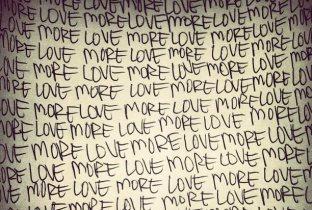 MORE LOVE MORE LOVE MORE LOVE MORE LOVE
MORE LOVE MORE LOVE MORE LOVE MORE
LOVE MORE LOVE MORE LOVE MORE LOVE
MORE LOVE MORE LOVE MORE LOVE MORE
LOVE MORE LOVE MORE LOVE MORE LOVE
MORE LOVE MORE LOVE MORE LOVE MORE
LOVE MORE LOVE MORE LOVE MORE LOVE
MORE LOVE MORE LOVE MORE LOVE MORE
LOVE MORE LOVE MORE LOVE MORE LOVE
MORE LOVE MORE LOVE MORE LOVE